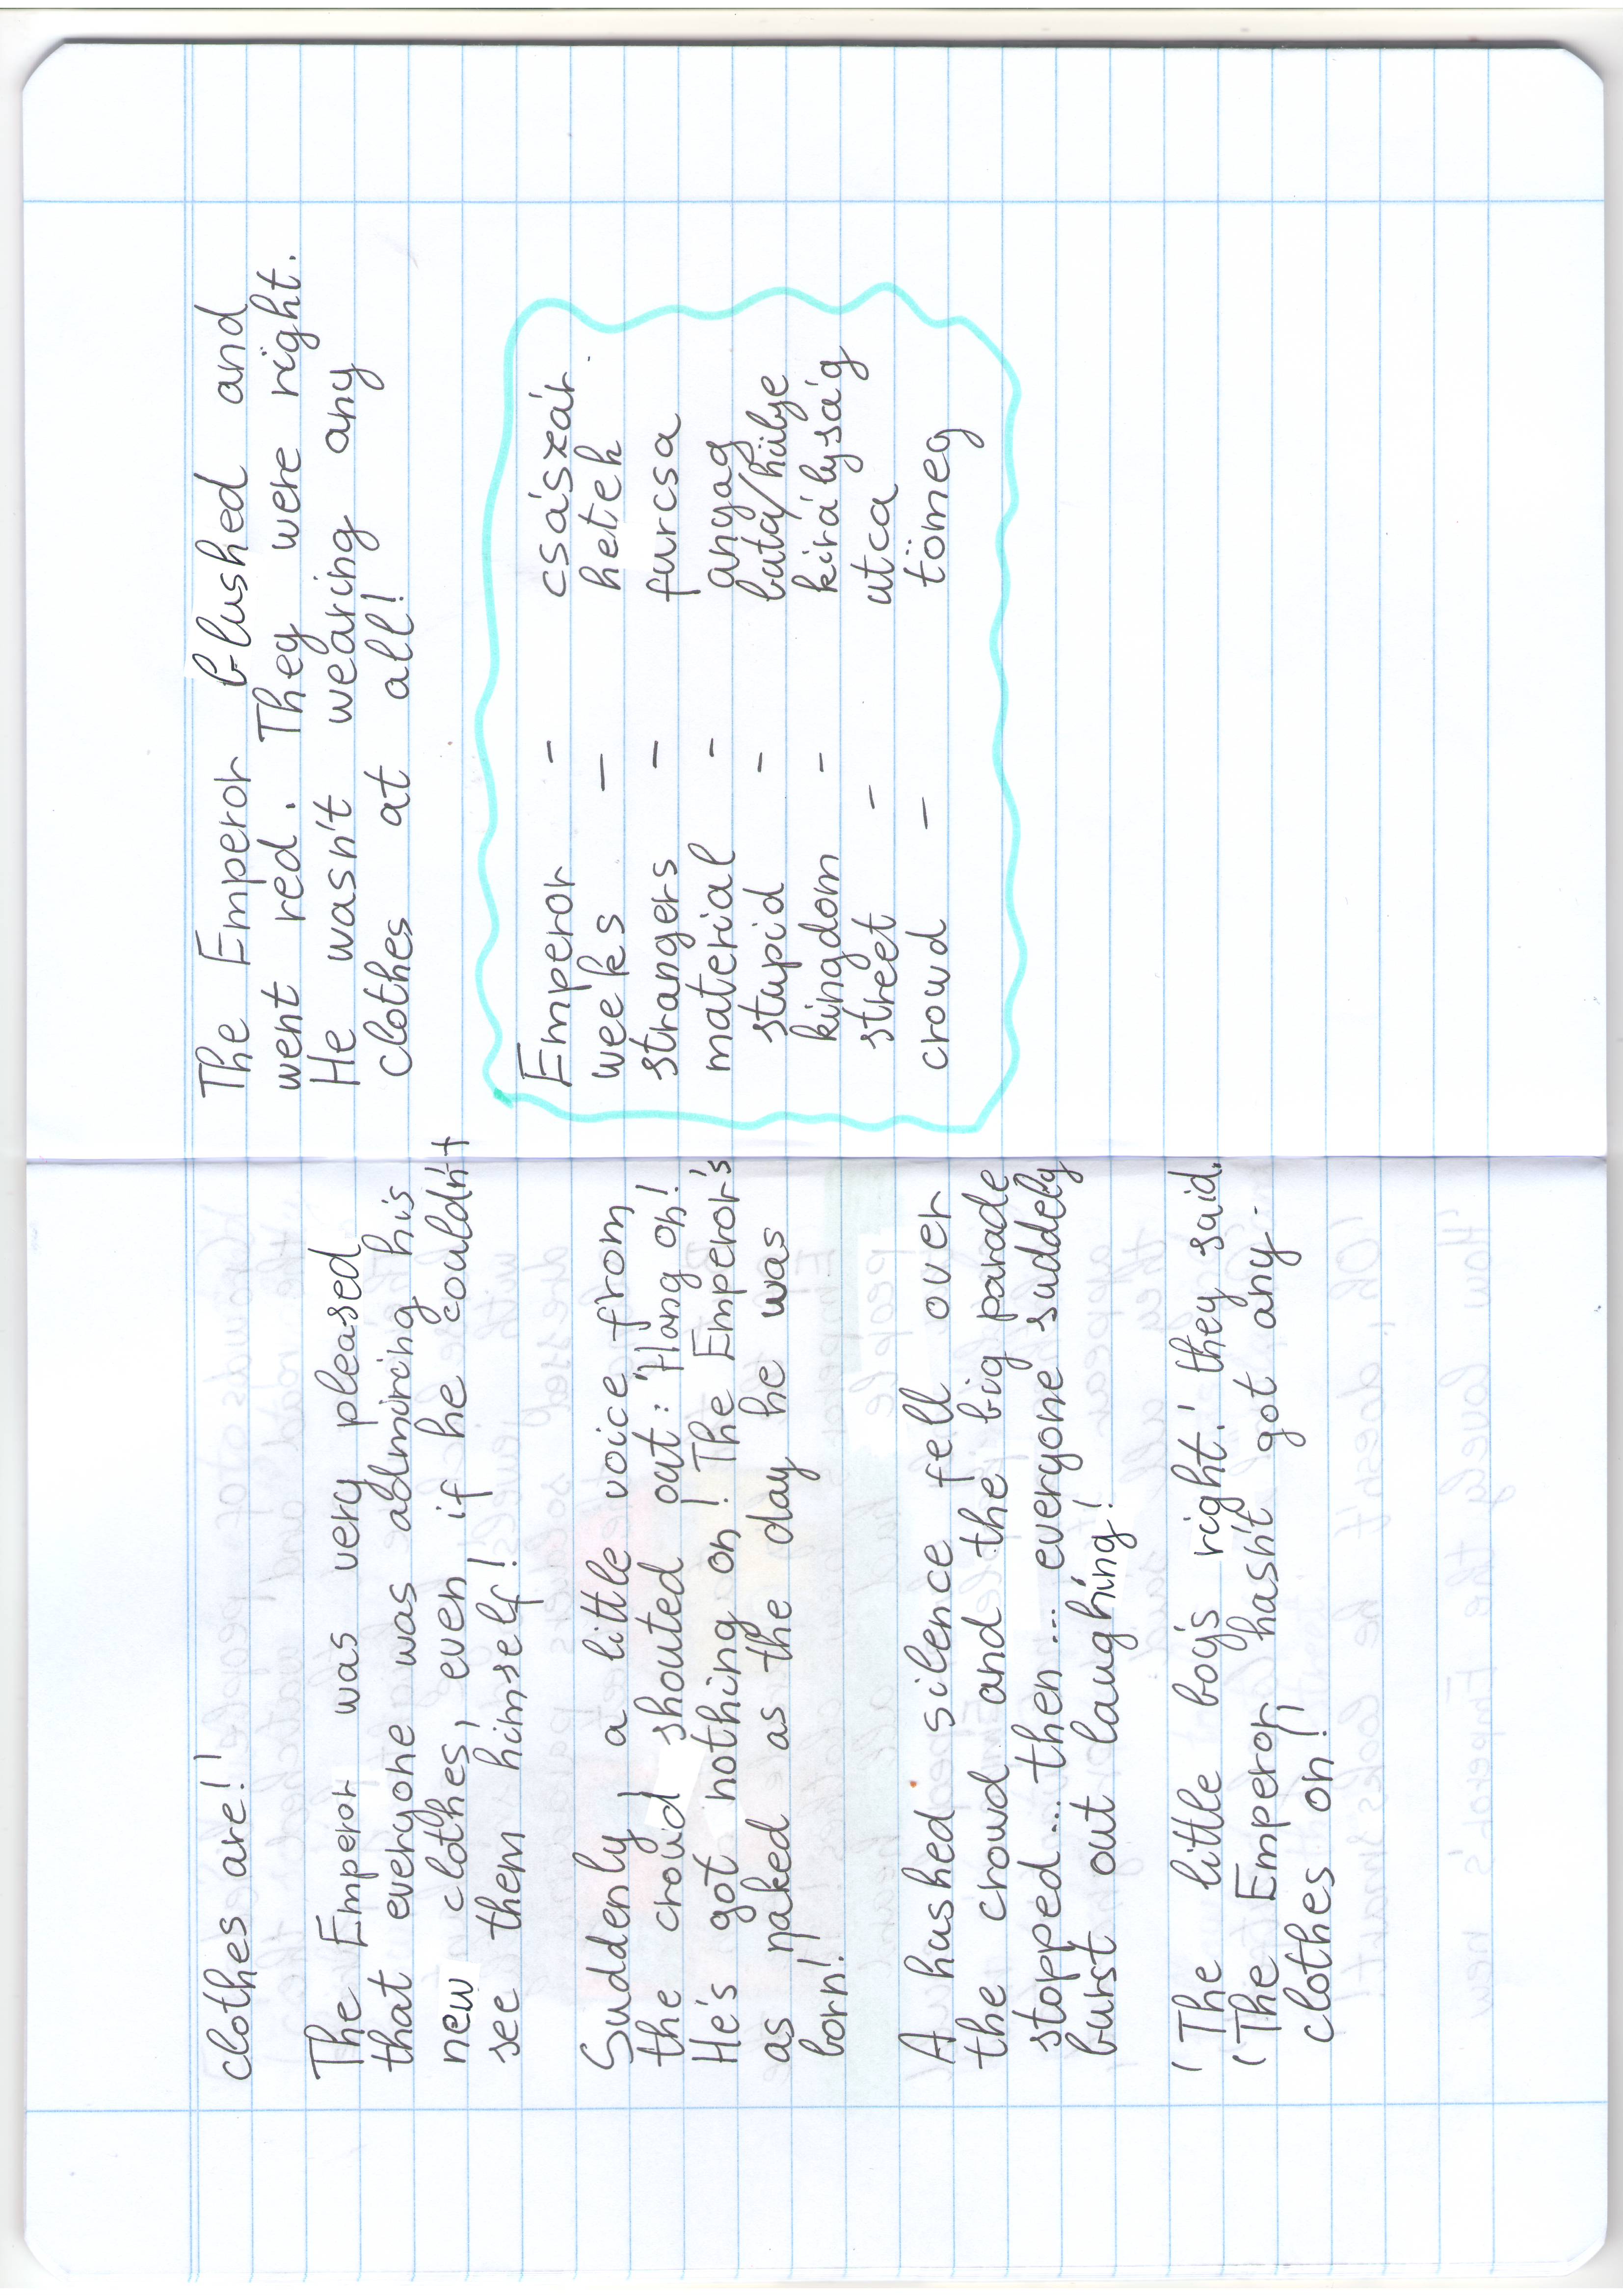 clothes are!'
The Emperor was very pleased
that everyone was admiring his
new clothes, even if he couldn't
see them himself!
Suddenly, a little voice from
the crowd shouted out: "Hang on!
He's got nothing on! The Emperor's
as naked as the day he was
born!'
A hushed silence fell over
the crowd and the big parade
stopped... then... everyone suddely
burst out laughing!
'The little boy's right!' they said.
'The Emperor hasn't got any
clothes on!'
The Emperor blushed and
went red. They were right.
He wasn't wearing any
clothes at all!
Emperor - császár
weeks - hetek
strangers - furcsa
material - anyag
stupid - buta/hülye
kingdom - királyság
street - utca
crowd - tömeg